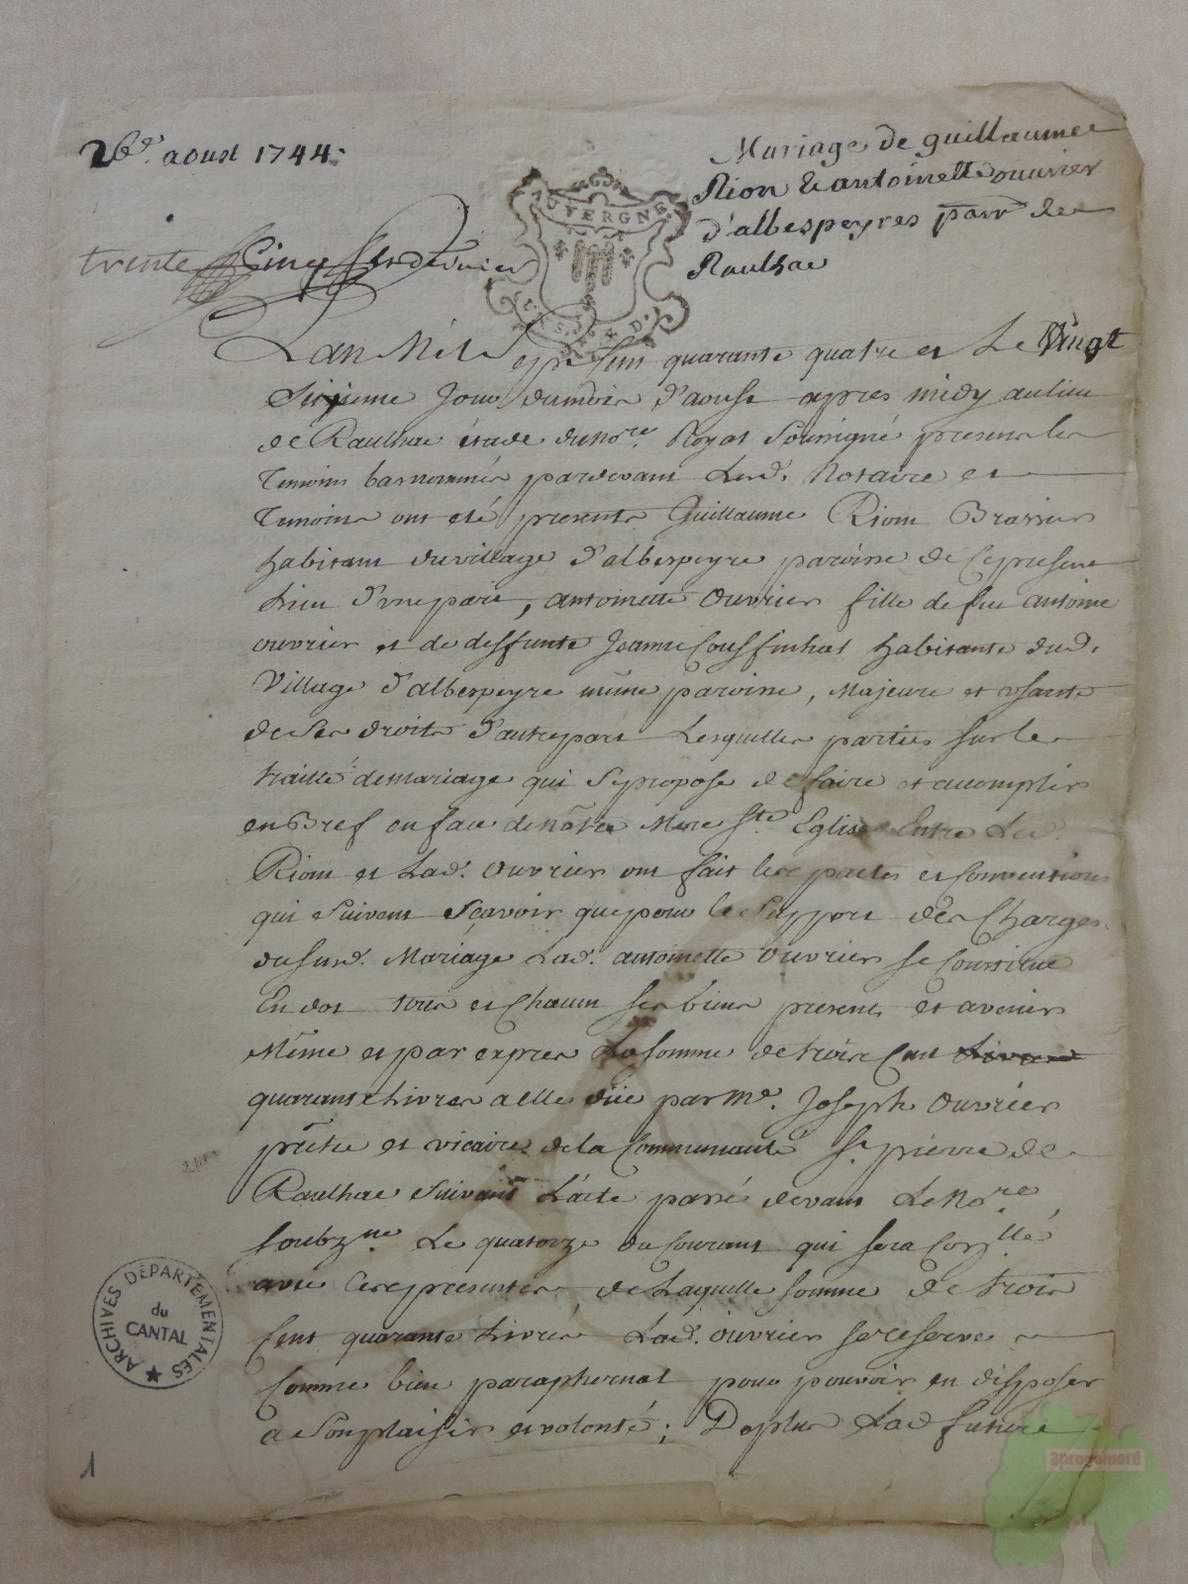 26e. aoust 1744.
Mariage de guillaume
Rion & antoinette ouvrier
d'albespeyres parr. de
Raulhac
AUVERGNE
trente Cinq
Lan Mil sept sent quarante quatre et Le Vingt
Sixieme Jour dumois d'aoust apres midy aulieu
de Raulhac étude du nore. Royal Soussigné presens les
Temoins basnommés pardevant Led. Notaire et
Temoins ont eté presents Guillaume Riom Brassier
habitant du village d'albespeyre paroisse de Cepresent
Lieu d'une part, antoinette Ouvrier fille de feu antoine
ouvrier et de deffunte Jeanne Couffinhal habitante dud.
Village d'albespeyre même paroisse, Majeure et usante
de Ses droits d'autrepart Lesquelles parties sur le
traitté demariage qui Sepropose de faire et accomplir
en Bref en face de nôtre Mere Ste Eglise Entre Led.
Riom et Lad. Ouvrier ont fait les pactes et Conventions
qui Suivent Sçavoir que pour le Support des Charges
dususd. Mariage Lad. antoinette Ouvrier se Constitue
En dot tous et Chacun ses biens presents et avenir
Même et par expres La somme de trois Cent Livres
quarante Livres a elle düe par Me. Joseph Ouvrier
prêtre et vicaire de la Communauté St. pierre de
Raulhac Suivant L'acte passé devant Le Nore.
soubzne Le quatorze du Courant qui sera Conllé
avec Ces presentes, de Laquelle somme de trois
Cent quarante Livres Lad. Ouvrier se reserve
Comme bien paraphernal pour pouvoir en disposer
a Son plaisir et volonté; De plus Lad future
ARCHIVES DÉPARTEMENTALES
du
CANTAL
1
aprogemere